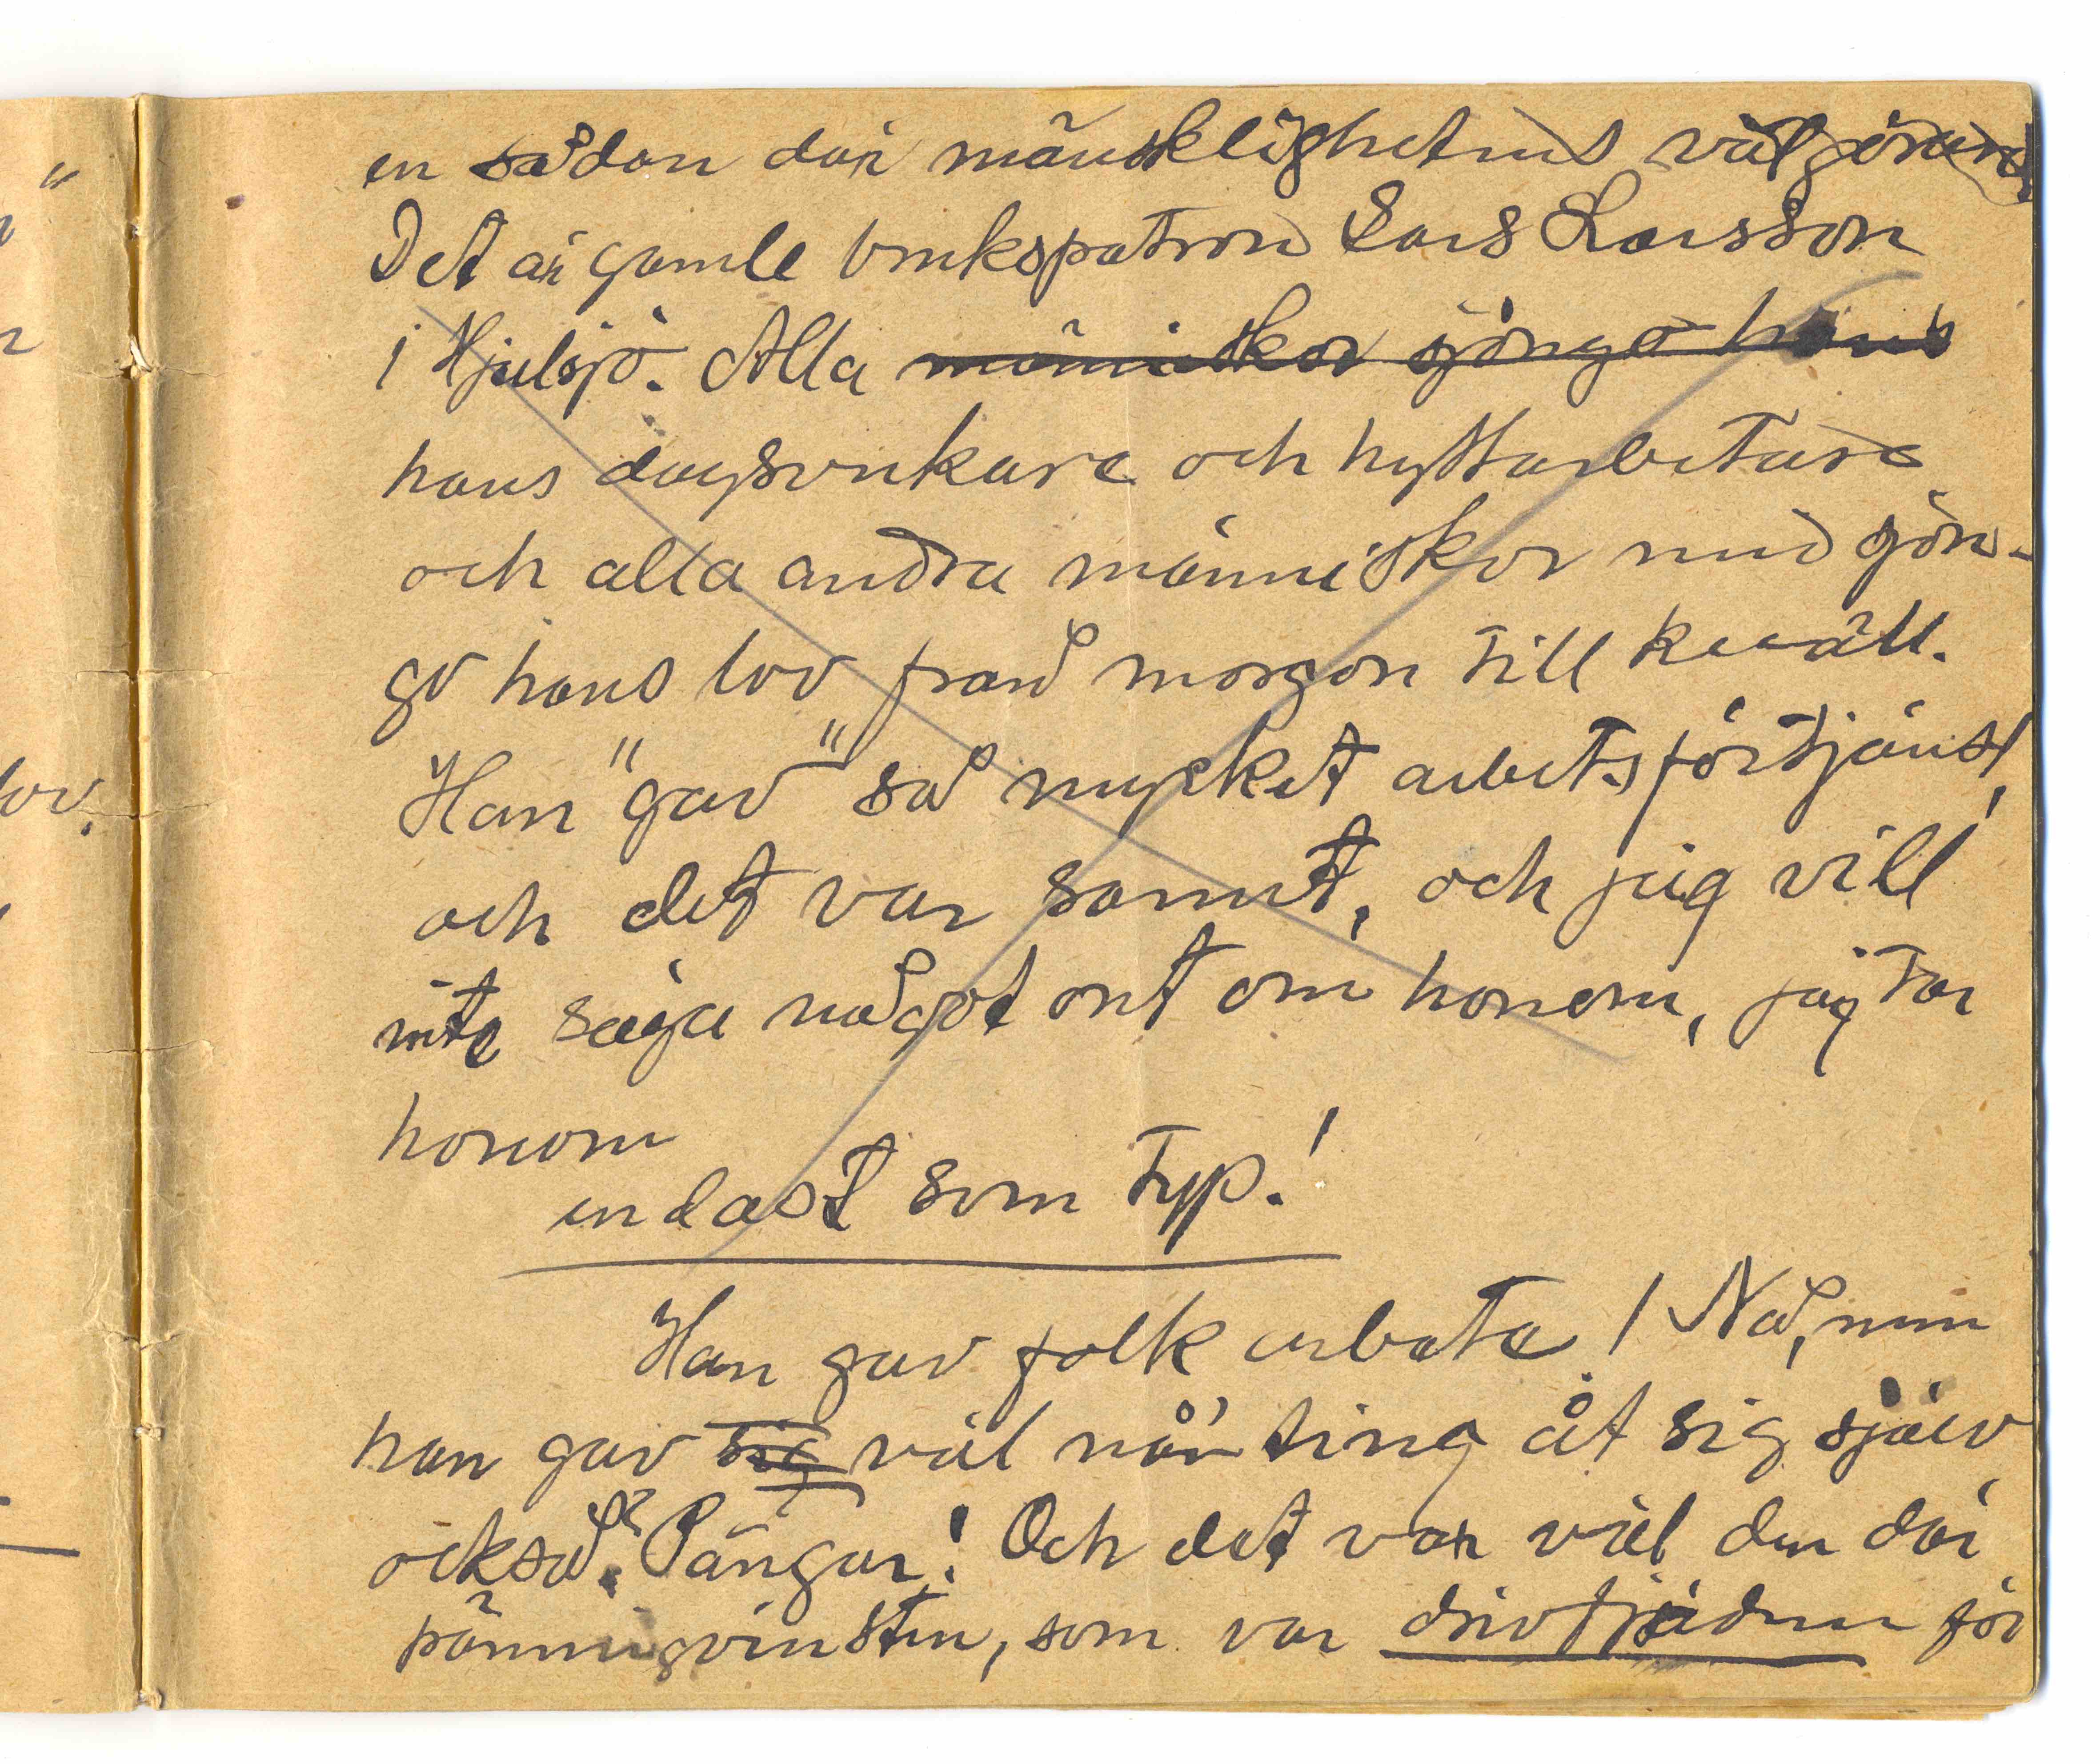 en sådan där mänsklighetens välgörare
Det är gamle brukspatron Lars Larsson
i Hjulsjö. Alla människor sjönge hans
hans dagsverkare och hyttarbetare
och alla andra människor med sjön-
go hans lov från morgon till kväll.
Han "gav" så mycket arbetsförtjänst,
och det var sannt, och jag vill
inte säga något ont om honom, jag tar
honom
endast som typ!
Han gav folk arbete! Nå, men
han gav sig väl nån'ting åt sig själv
också? Pängar! Och det var väl den där
pänningvinsten, som var drivfjädern för
lov.